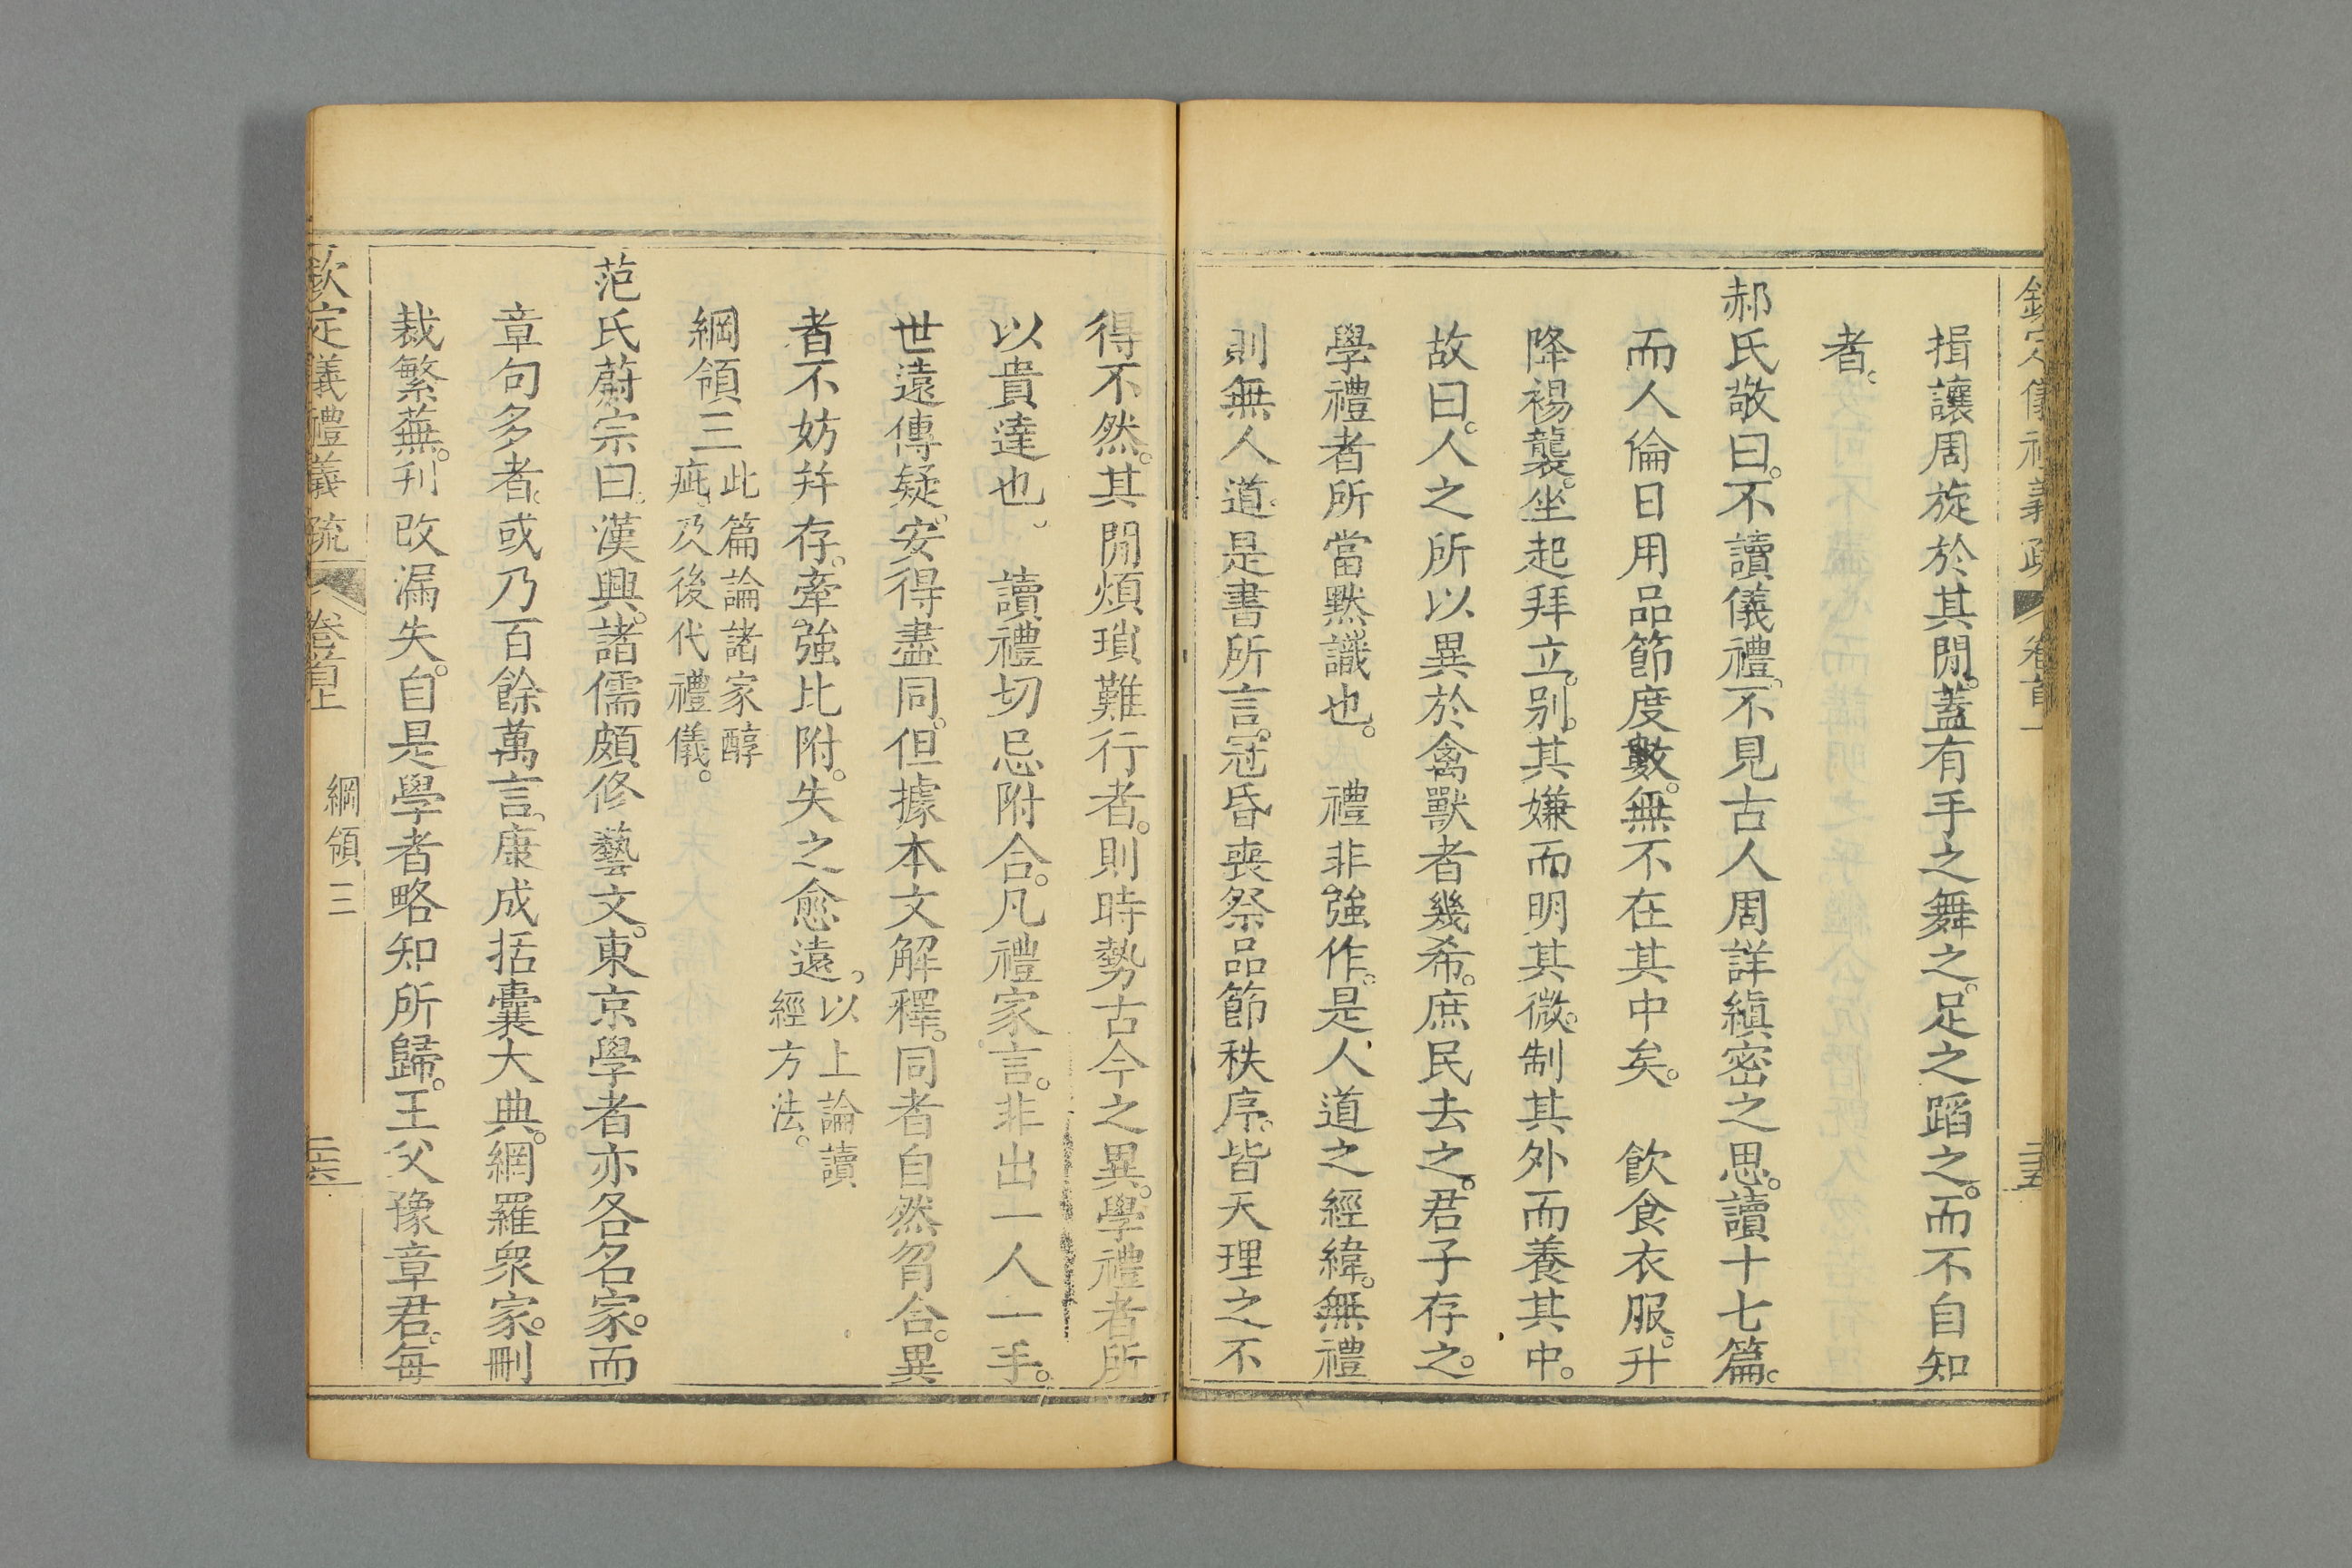 揖讓周旋於其閒。蓋有手之舞之。足之蹈之。而不自知
者。
郝氏敬曰。不讀儀禮。不見古人周詳縝密之思。讀十七篇。
而人倫日用品節度數。無不在其中矣。　飲食衣服。升
降裼襲。坐起拜立。别。其嫌而明其微。制其外而養其中。
故曰。人之所以異於禽獸者幾希。庶民去之。君子存之。
學禮者所當默識也。　禮非強作。是人道之經緯。無禮
則無人道。是書所言。冠昏喪祭品節秩序。皆天理之不
得不然。其閒煩瑣難行者。則時勢古今之異。學禮者所
以貴達也。　讀禮切忌附合。凡禮家言。非出一人一手。
世遠傳疑。安得盡同。但據本文解釋。同者自然脗合。異
者不妨并存。牽強比附。失之愈遠。以上論讀
經方法。
綱領三此篇論諸家醇
疵及後代禮儀。
范氏蔚宗曰。漢興。諸儒頗修藝文。東京學者亦各名家。而
章句多者。或乃百餘萬言。康成括囊大典。網羅衆家。刪
裁繁蕪。刊改漏失。自是學者略知所歸。王父豫章君。每
欽定儀禮義疏　卷首上　綱領三　二六